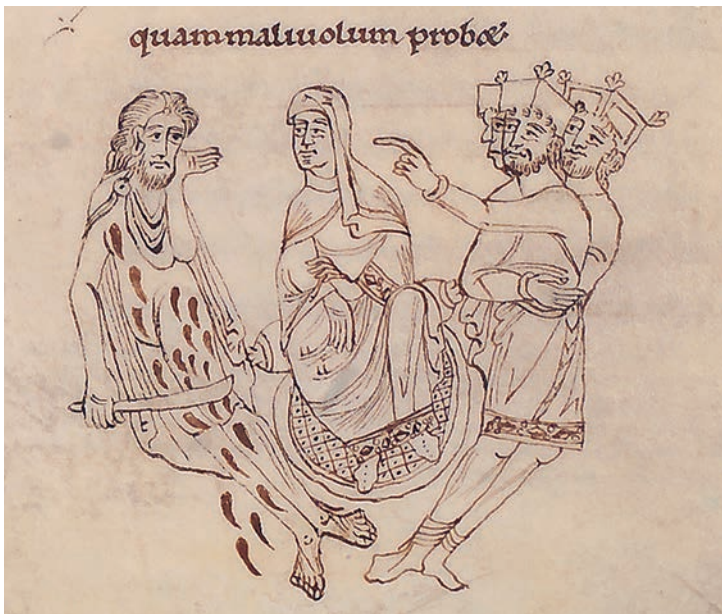 quam malivolum probæ